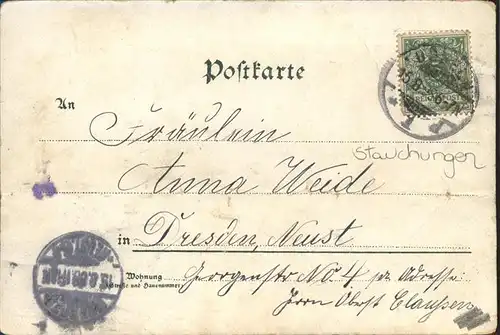 Postkarte
An
Fräulein
Stauchungen
Anna Weide
in Dresden, Neust
Wohnung
(Straße und Hausnummer)
Georgenstr No. 4 pr Adresse:
Herrn Oberst Claußen